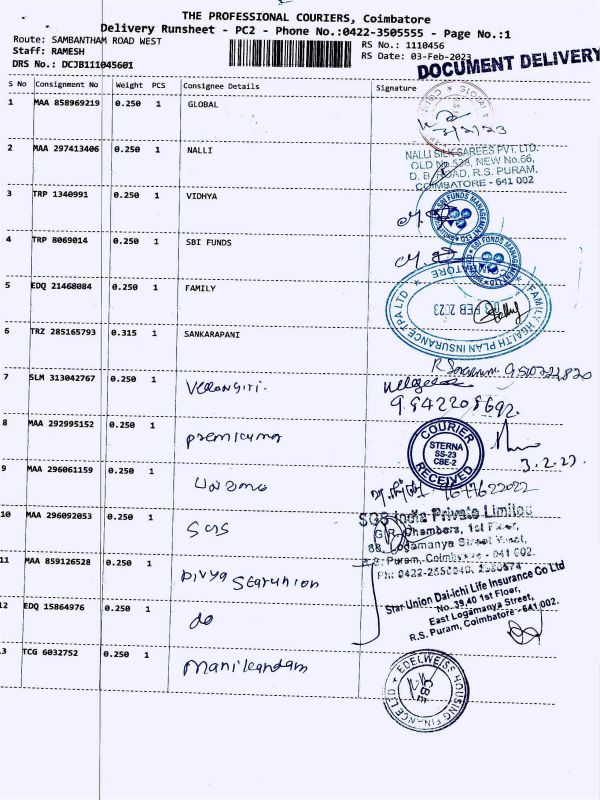 THE PROFESSIONAL COURIERS, Coimbatore
Delivery Runsheet - PC2 - Phone No.:0422-3505555 - Page No.:1
Route: SAMBANTHAM ROAD WEST
Staff: RAMESH
DRS No.: DCJB111045601
RS No.: 1110456
RS Date: 03-Feb-2023
DOCUMENT DELIVERY
S No Consignment No Weight PCS Consignee Details Signature
1 MAA 858969219 0.250 1 GLOBAL
3/2/23
2 MAA 297413406 0.250 1 NALLI
NALLI SILK SAREES PVT. LTD.
OLD No.528, NEW No.66,
D. B. ROAD, R.S. PURAM,
COIMBATORE - 641 002
3 TRP 1340991 0.250 1 VIDHYA
SBI FUNDS MANAGEMENT LTD
4 TRP 8069014 0.250 1 SBI FUNDS
SBI FUNDS MANAGEMENT LTD
5 EDQ 21468084 0.250 1 FAMILY
FAMILY HEALTH PLAN INSURANCE TPA LTD
COIMBATORE
FEB 2023
6 TRZ 285165793 0.315 1 SANKARAPANI
7 SLM 313042767 0.250 1 Velangiri.
9842208692.
8 MAA 292995152 0.250 1 Premkumar
COURIER
STERNA
SS-23
CBE-2
RECEIVED
3.2.23
9 MAA 296061159 0.250 1
10 MAA 296092053 0.250 1 SGS
SGS India Private Limited
G.R. Chambers, 1st Floor,
Logamanya Street
R.S. Puram, Coimbatore - 641 002.
11 MAA 859126528 0.250 1 Divya Starunion
Star Union Dai-ichi Life Insurance Co Ltd
No. 39,40 1st Floor,
East Logamanya Street,
R.S. Puram, Coimbatore - 641 002.
12 EDQ 15864976 0.250 1 do
13 TCG 6032752 0.250 1 Manikandam
EDELWEISS HOUSING FINANCE LTD
CBE